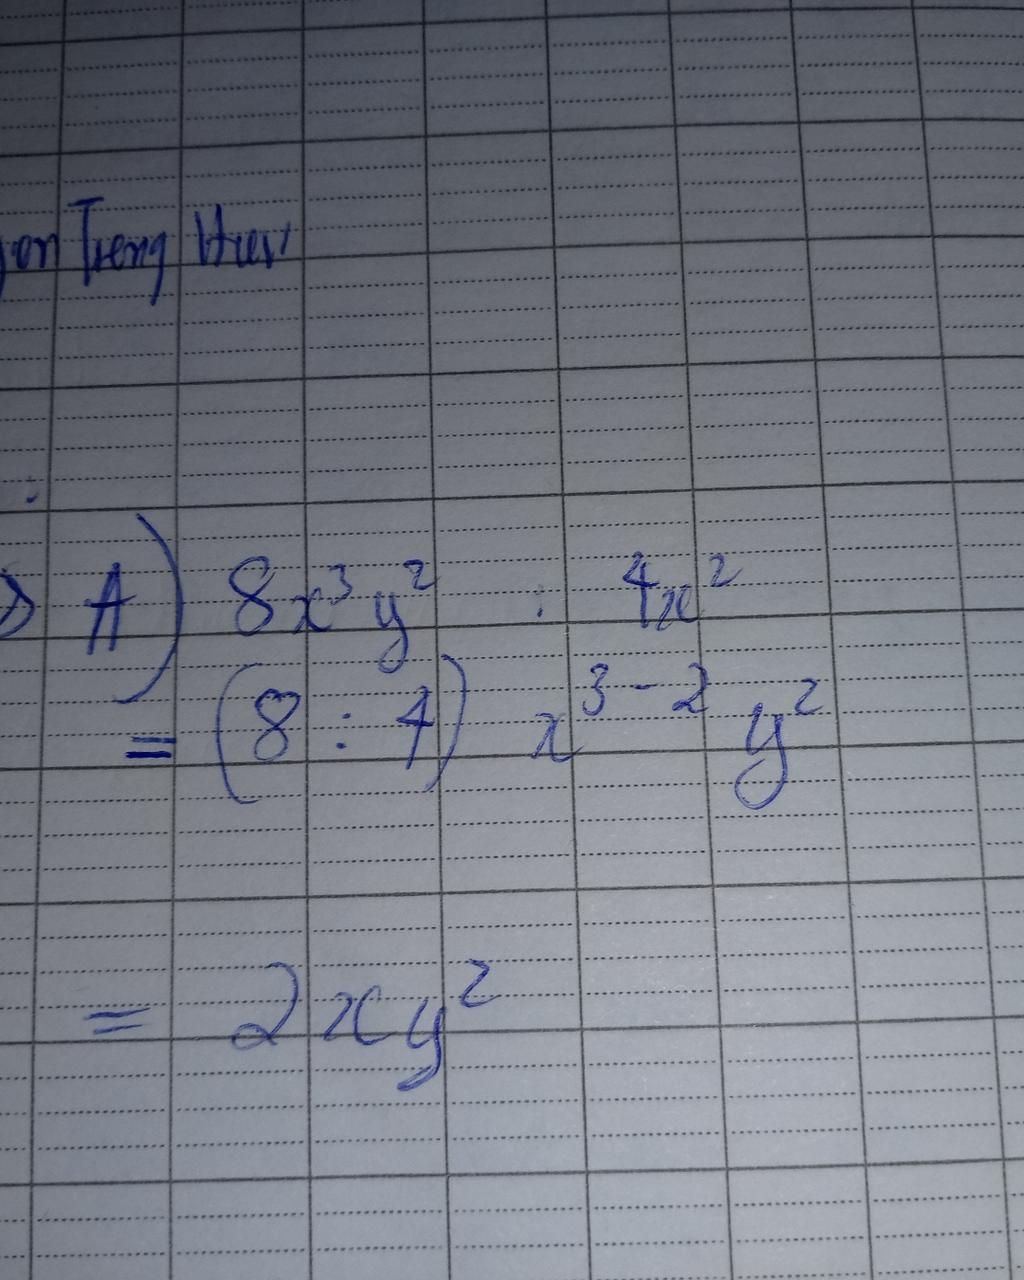 Trong Hiếu
A) 8x³y² : 4x²
= (8 : 4) x³⁻² y²
= 2xy²